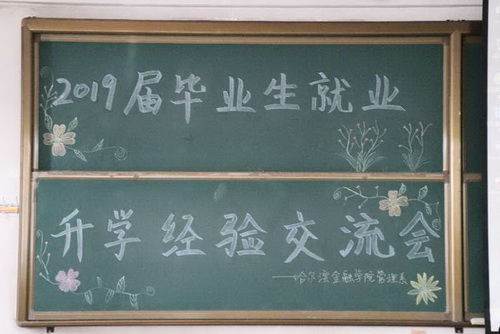 2019届毕业生就业
升学经验交流会
——哈尔滨金融学院管理系